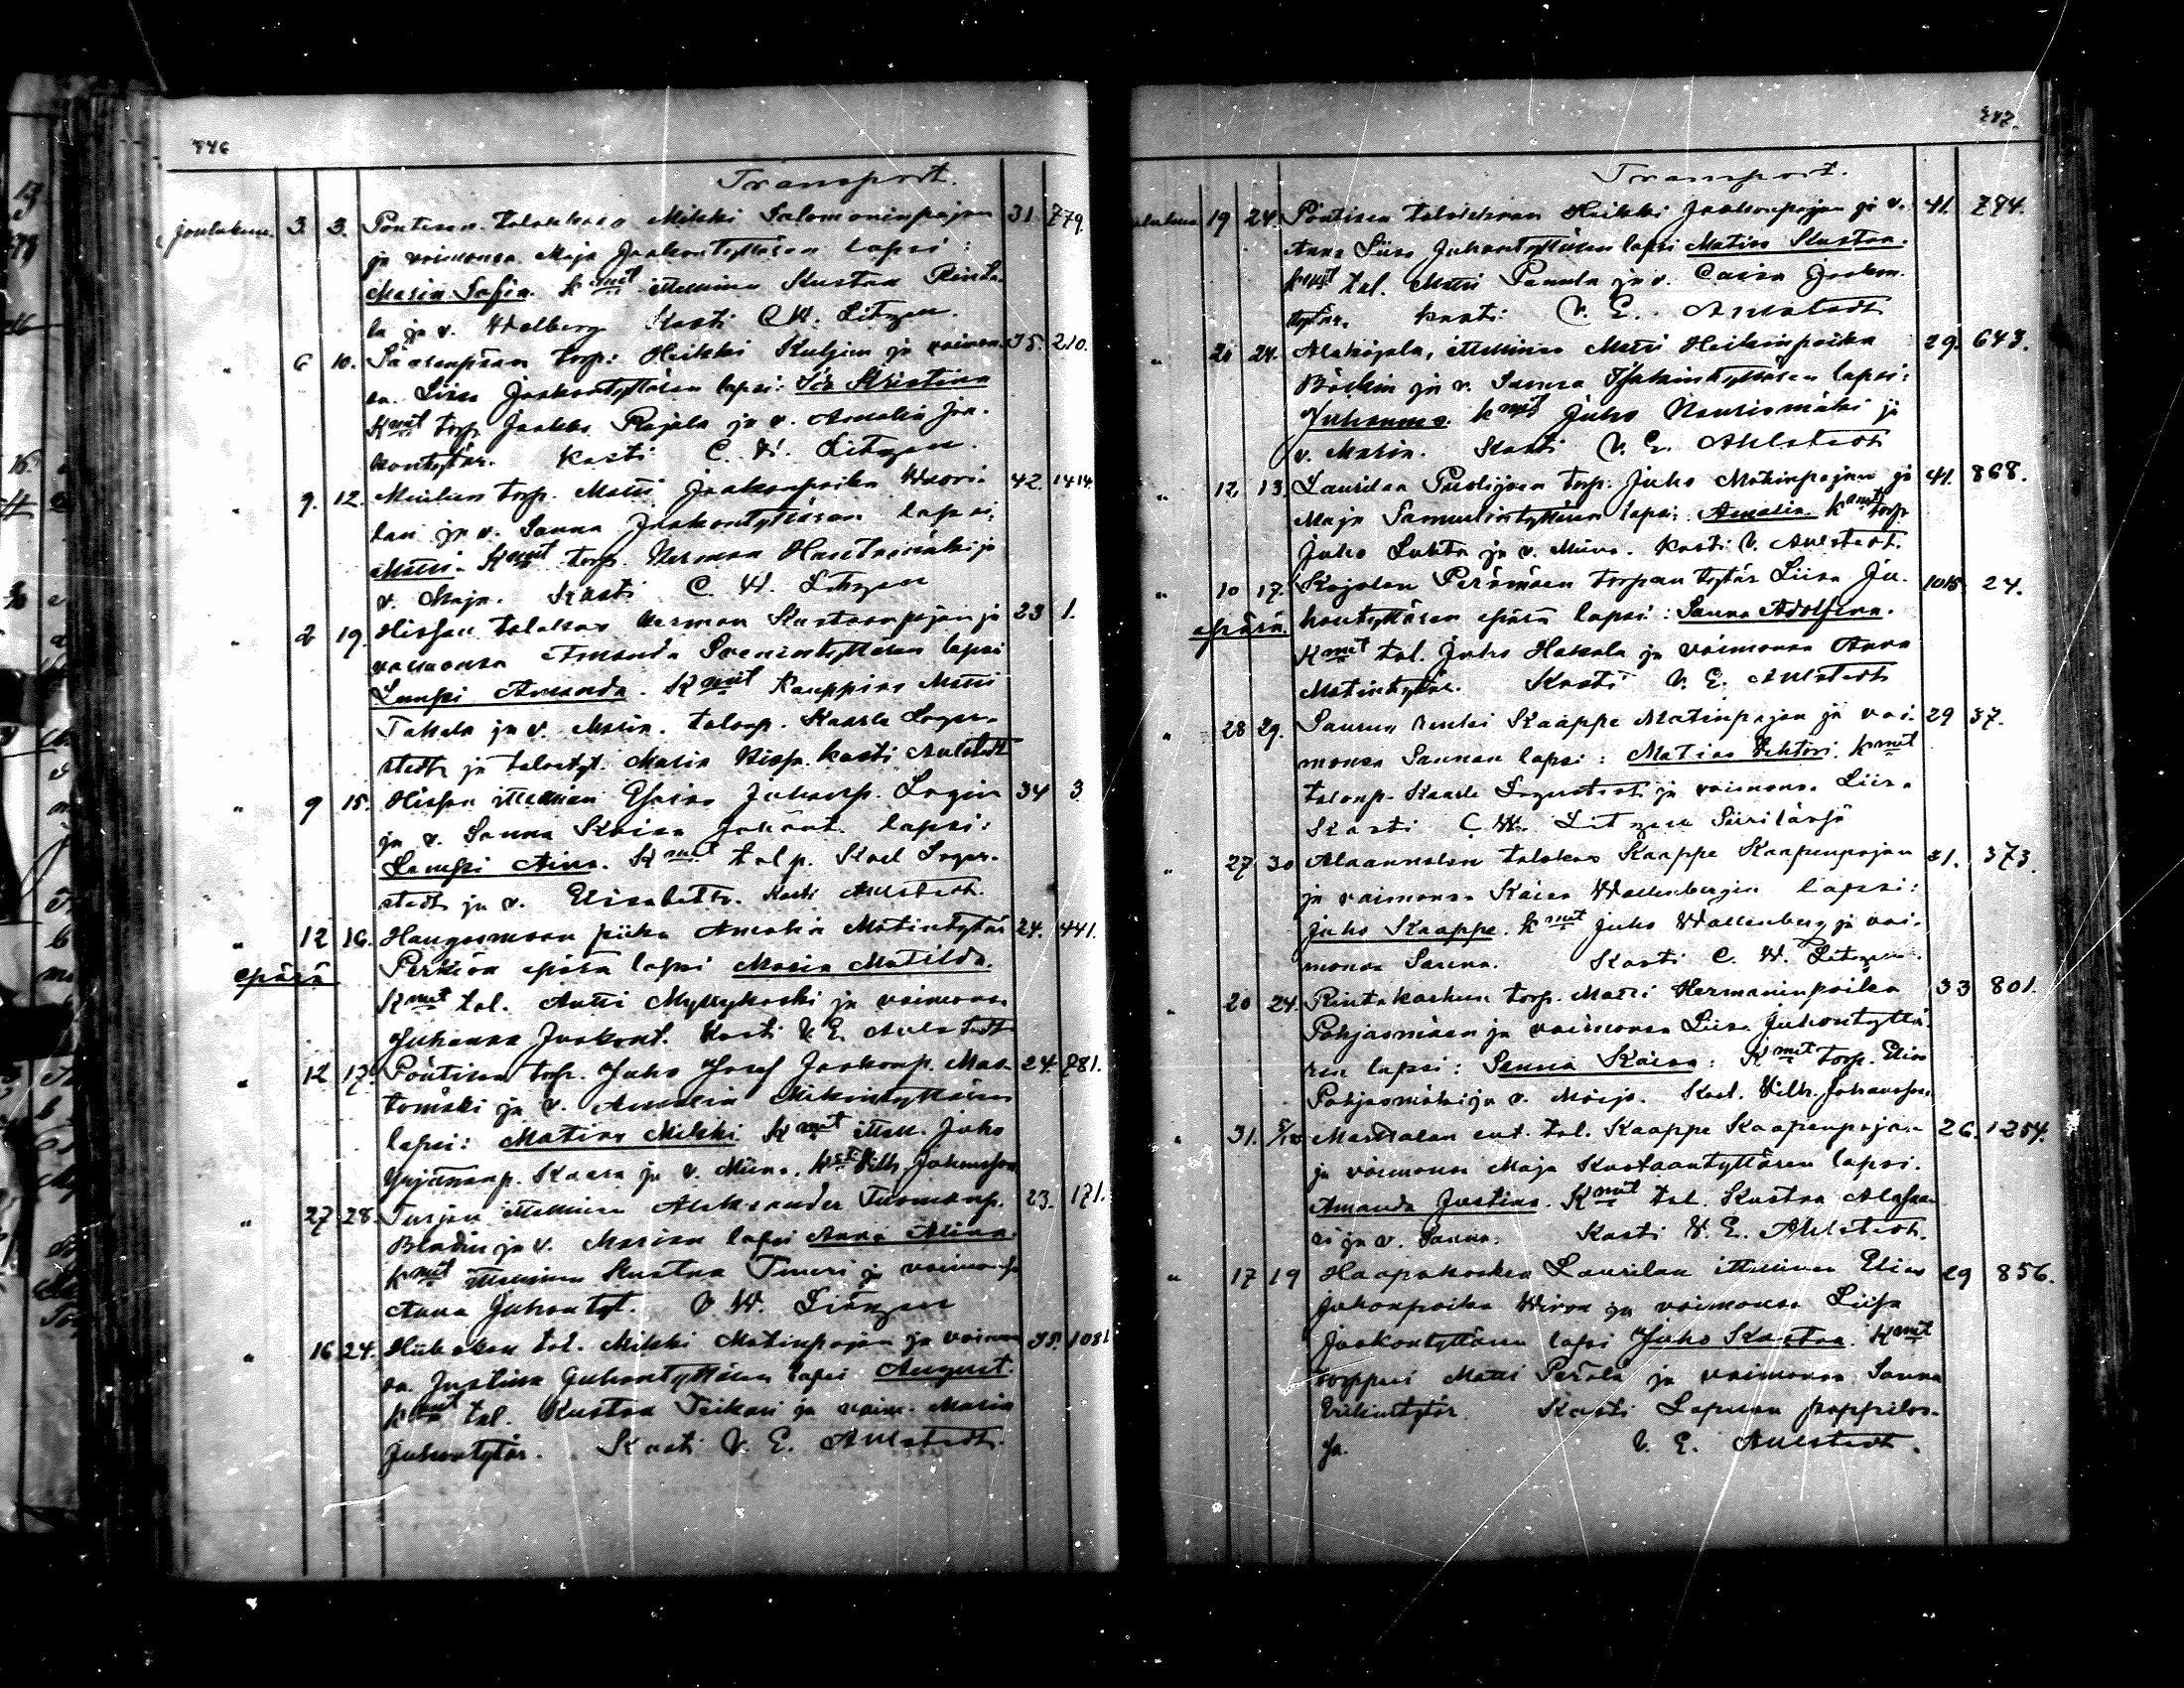 446
Transport.
Joulukuu. 3. 3. Pöntisen talokkaan Mikki Salomoninpojan 31. 779.
ja vaimonsa Maja Jaakontyttären lapsi:
Maria Sofia. Kmit itellinen Kustaa Rinta-
la ja v. Walborg. Kasti C. W. Litzen.
" 6 10. Saarenpään torp: Heikki Kuljun ja vaimon- 35. 210.
sa Liisa Jaakontyttären lapsi: Ida Kristiina
Kmit torp. Jaakko Rajala ja v. Amalia Jaa-
kontytär. Kasti C. W. Litzen.
" 9. 12. torp. Matti Jaakonpoika Wuori- 42. 1414.
lan ja v. Sanna Jaakontyttären lapsi:
Matti. Kmit torp. Herman Hautamäki ja
v. Maja. Kasti C. W. Litzen
" 2 19. Hissan talokas Herman Kustaanpojan ja 23 1.
vaimonsa Amanda lapsi
Lempi Amanda. Kmit kauppias Matti
Takala ja v. Maria. talonp. Kaarle Lager-
stedt ja talontyt. Maria Hissa. kasti Ahlstedt
" 9 15. Hissan itellinen Esaias Juhonp. Login 34 3.
ja v. Sanna Kaisa Juhont. lapsi:
Lempi Aina. Kmit tal p. Karl Lager-
stedt ja v. Elisabeth. Kasti Ahlstedt.
" 12 16. Haugasmaan piika Amalia Matintytär 24. 441.
epärä Perkiön epärä lapsi Maria Matilda.
Kmit tal. Antti Myllykoski ja vaimonsa
Juhanna Jaakont. Kasti V. E. Ahlstedt
" 12 17. Pöntisen torp. Juho Josef Jaakonp. Mas- 24. 781.
tomäki ja v. Amalia Mikintyttären
lapsi: Matias Mikki Kmit itell. Juho
Yrjänänp. Kaara ja v. Miina. Kasti Vilh. Johansson
" 27 28. Turjan itellinen Aleksander Tuomanp. 23. 171.
Bladin ja v. Marian lapsi Anna Alina.
Kmit itellinen Kustaa Tuuri ja vaimonsa
Anna Juhontyt. C. W. Litzen
" 16 24. tal. Mikki Matinpojan ja vaimon 35. 1081
sa Justina Juhontyttären lapsi August.
Kmit tal. Kustaa Teikari ja vaim. Maria
Juhontytär. Kasti V. E. Ahlstedt.
447.
Transport.
Joulukuu 19 24. Pöntisen talokkaan Heikki Jaakonpojan ja v. 41. 794.
Anna Liisa Juhontyttären lapsi Matias Kustaa.
Kmit tal. Matti Pannula ja v. Caisa Jaakon-
tytär. kasti: V. E. Ahlstedt
" 20 24. Alakojola, itellinen Matti Heikinpoika 29. 643.
Bäckin ja v. Sanna lapsi:
Juhannes. Kmit Juho Nourismäki ja
v. Maria. Kasti V. E. Ahlstedt
" 12 13. Laurilan Puolijoen torp. Juho Matinpojan ja 41. 868.
Maja Samuelintyttären lapsi: Amalia. Kmit torp.
Juho Luhta ja v. Miina. Kasti V. Ahlstedt.
" 10 17. Kojolan Perämäen torpan tytär Liisa Ju- 1015. 24.
epärä. hontyttären epärä lapsi: Sanna Adolfina.
Kmit tal. Juho Hakala ja vaimonsa Anna
Matintytär. Kasti V. E. Ahlstedt
" 28 29. Kaappo Matinpojan ja vai- 29 37.
monsa Sannan lapsi: Matias Vihtori. Kmit
talonp. Kaarle Lagerstedt ja vaimonsa Liisa
Kasti C. W. Litzen Siirilässä
" 27 30 Alaannalan talokas Kaappo Kaaponpojan 31. 373.
ja vaimonsa Kaisa Wallenbergin lapsi:
Juho Kaappo. Kmit Juho Wallenberg ja vai-
monsa Sanna. Kasti C. W. Litzen.
" 20 24. Rintakosken torp. Matti Hermaninpoika 33 801.
Pohjasmäen ja vaimonsa Liisa Juhontyttä-
ren lapsi: Sanna Kaisa: Kmit torp. Elias
Pohjasmäki ja v. Maija. Kast. Vilh. Johansson.
" 31. Marttalan ent. tal. Kaappo Kaaponpojan 26. 1254.
ja vaimonsa Maja Kustaantyttären lapsi.
Amanda Justina. Kmit tal. Kustaa Alasaa-
ri ja v. Sanna. Kasti V. E. Ahlstedt.
" 17 19 Haapakosken Laurilan itellinen Elias 29 856.
Juhonpoika Wiron ja vaimonsa Liisa
Jaakontyttären lapsi Juho Kustaa. Kmit
torppari Matti Perälä ja vaimonsa Sanna
Kasti Lapuan pappilas-
sa. V. E. Ahlstedt.